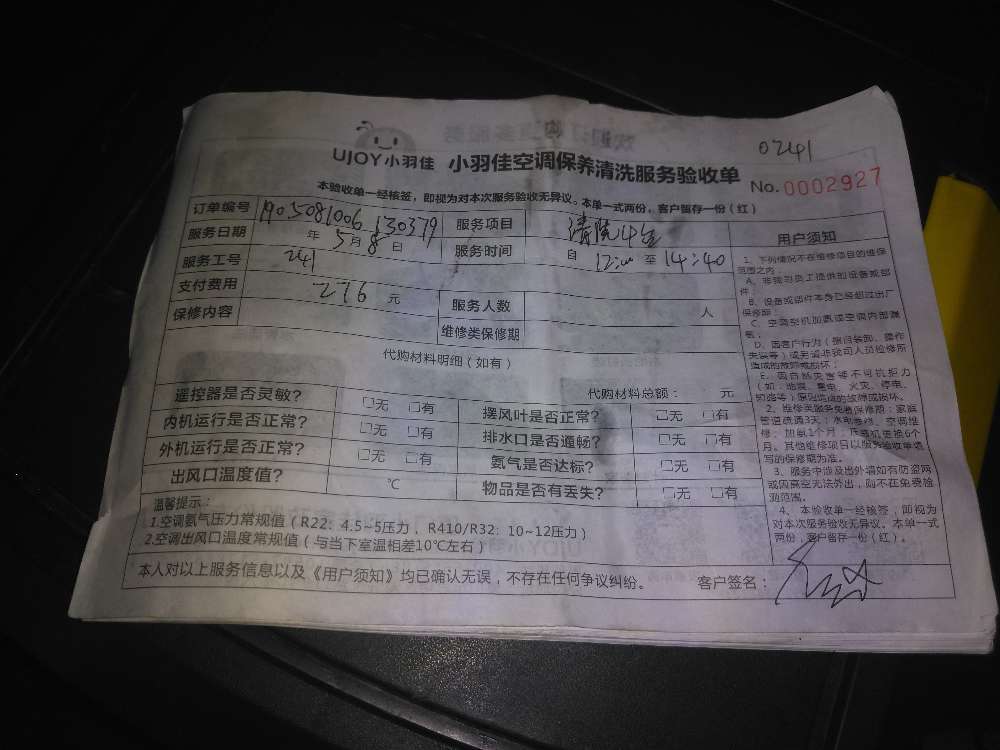 0241
UJOY小羽佳 小羽佳空调保养清洗服务验收单
No. 0002927
本验收单一经核签，即视为对本次服务验收无异议。本单一式两份，客户暂存一份（红）
订单编号 1905081006130379 服务项目
服务日期 年 5月8日 服务时间 自 12:00 至 14:40
服务工号 241
支付费用 276 元 服务人数 人
保修内容 维修类保修期
代购材料明细（如有）
代购材料总额： 元
遥控器是否灵敏？ □无 □有 摆风叶是否正常？ □无 □有
内机运行是否正常？ □无 □有 排水口是否通畅？ □无 □有
外机运行是否正常？ □无 □有 氨气是否达标？ □无 □有
出风口温度值？ ℃ 物品是否有丢失？ □无 □有
温馨提示：
1.空调氨气压力常规值（R22：4.5~5压力，R410/R32：10~12压力）
2.空调出风口温度常规值（与当下室温相差10℃左右）
本人对以上服务信息以及《用户须知》均已确认无误，不存在任何争议纠纷。 客户签名：
用户须知
1、下列情况不在维修项目的维保
范围之内：
A、非我司员工提供的设备或部
件；
B、设备或部件本身已经超过出厂
保修期；
C、空调整机加氨或空调内部漏
氨；
D、因客户行为（擅自装卸、操作
失误等）或另请非我司人员检修所
造成的故障或损坏；
E、因自然灾害等不可抗拒力
（如：地震、雷电、火灾、停电、
财盗等）原因造成的故障或损坏。
2、维修类服务免费保修期：家庭
管道疏通3天；水电维修、空调维
修、加氨1个月；压缩机更换6个
月。其他维修项目以服务验收单填
写的保修期为准。
3、服务中涉及出外墙如有防盗网
或因高空无法外出，则不在免费检
测范围。
4、本验收单一经核签，即视为
对本次服务验收无异议。本单一式
两份，客户暂存一份（红）。